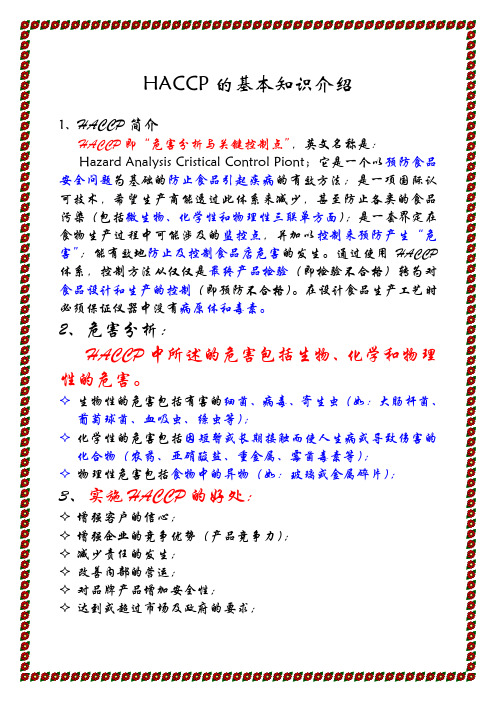 HACCP 的基本知识介绍
1、HACCP 简介
HACCP 即“危害分析与关键控制点”，英文名称是：
Hazard Analysis Cristical Control Piont；它是一个以预防食品
安全问题为基础的防止食品引起疾病的有效方法；是一项国际认
可技术，希望生产商能透过此体系来减少，甚至防止各类的食品
污染（包括微生物、化学性和物理性三联单方面）；是一套界定在
食物生产过程中可能涉及的监控点，并加以控制来预防产生“危
害”；能有效地防止及控制食品店危害的发生。通过使用 HACCP
体系，控制方法从仅仅是最终产品检验（即检验不合格）转为对
食品设计和生产的控制（即预防不合格）。在设计食品生产工艺时
必须保证仪器中没有病原体和毒素。
2、危害分析：
HACCP 中所述的危害包括生物、化学和物理
性的危害。
✧ 生物性的危害包括有害的细菌、病毒、寄生虫（如：大肠杆菌、
葡萄球菌、血吸虫、绦虫等）；
✧ 化学性的危害包括因短暂或长期接触而使人生病或导致伤害的
化合物（农药、亚硝酸盐、重金属、霉菌毒素等）；
✧ 物理性危害包括食物中的异物（如：玻璃或金属碎片）；
3、实施 HACCP 的好处：
✧ 增强客户的信心；
✧ 增强企业的竞争优势（产品竞争力）；
✧ 减少责任的发生；
✧ 改善内部的营运；
✧ 对品牌产品增加安全性；
✧ 达到或超过市场及政府的要求；